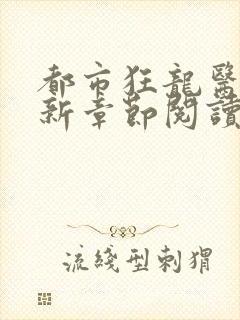 都市狂龍醫
新章節閱讀
流綫型刺猬